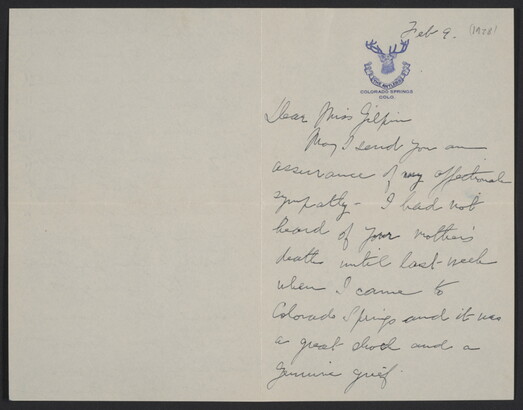 Feb 9. (1928)
THE ANTLERS
COLORADO SPRINGS
COLO.
Dear Miss Gilpin
May I send you an
assurance of my affectionate
sympathy - I had not
heard of your mother's
death until last week
when I came to
Colorado Springs and it was
a great shock and a
genuine grief.